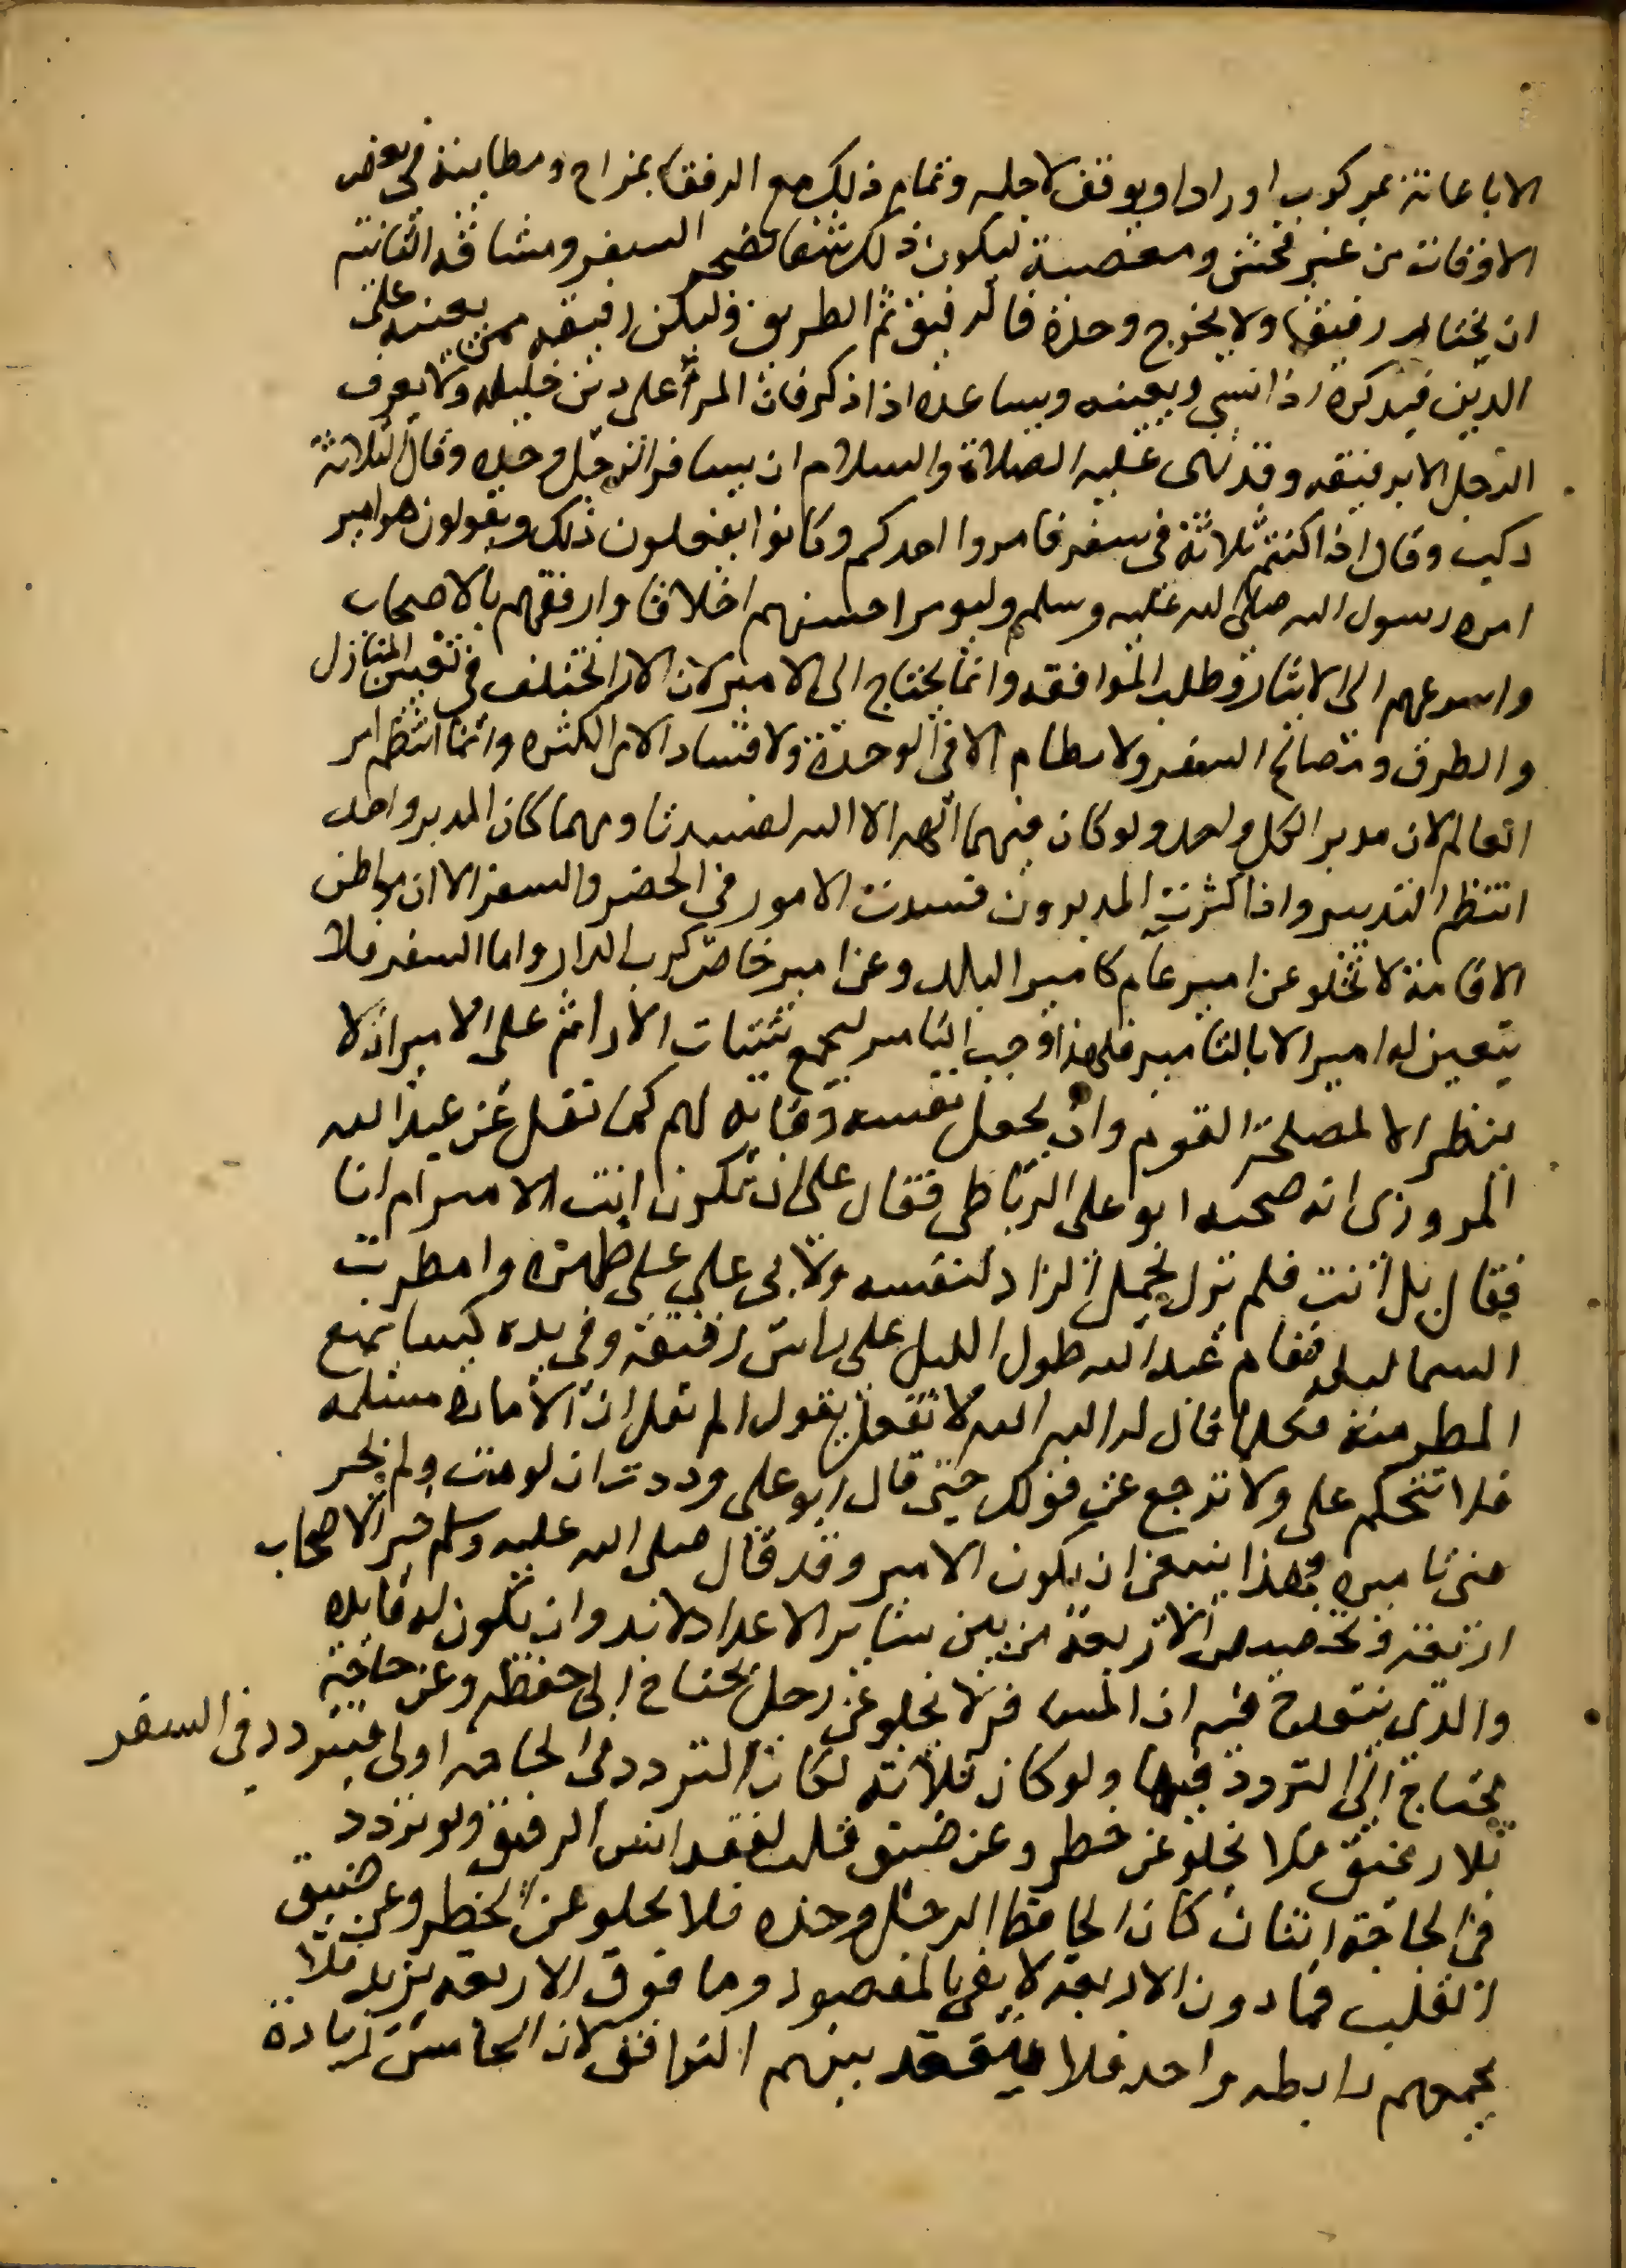 الا باعانته بمركوب او زاد او يوقف لاجله وتمام ذلك مع الرفقا بمزاح ومطايبة في بعض
الاوقات من غير فحش ومعصية ليكون ذلك شفا لضجر السفر ومشاقه الثانية
ان يختار رفيقا ولا يخرج وحده فالرفيق ثم الطريق وليكن رفيقه ممن يعينه على
الدين فيذكره اذا نسي ويعينه ويساعده اذا ذكر فان المرء على دين خليله ولا يعرف
الرجل الا برفيقه وقد نهى عليه الصلاة والسلام ان يسافر الرجل وحده وقال الثلاثة
ركب وقال اذا كنتم ثلاثة في سفر فامروا احدكم وكانوا يفعلون ذلك ويقولون هو امير
امره رسول الله صلى الله عليه وسلم وليومر احسنهم اخلاقا وارفقهم بالاصحاب
واسرعهم الى الايثار وطلب الموافقه وانما يحتاج الى الامير لان الارا تختلف في تعيين المنازل
والطرق ومصالح السفر ولا نطام الا في الوحدة ولا فساد الا من الكثره وانما انتظم امر
العالم لان مدبر الكل واحد ولو كان فيهما الهه الا الله لفسدتا ومهما كان المدبر واحد
انتظم التدبير واذا كثرت المدبرون فسدت الامور في الحضر والسفر الا ان مواطن
الاقامة لا تخلو عن امير عام كامير البلد وعن امير خاص كرب الدار واما السفر فلا
يتعين له امير الا بالتامير فلهذا وجب التامير ليجمع شتات الارا ثم على الامير ان لا
ينظر الا لمصلحة القوم وان يجعل نفسه وقايه لهم كما نقل عن عبد الله
المروزى انه صحبه ابو على الرباطى فقال على ان تكون انت الامير ام انا
فقال بل انت فلم يزل يحمل الزاد لنفسه ولابى على على ظهره وامطرت
السما ليله فقام عبد الله طول الليل على راس رفيقه وفى يده كسا يمنع
المطر منه فكلما قال له الله الله لا تفعل يقول الم تقل ان الامارة مسلمه
فلا تتحكم على ولا ترجع عن قولك حتى قال ابو على وددت ان لو مت ولم يجر
منى تاميره فهذا ينبغى ان يكون الامير وقد قال صلى الله عليه وسلم خير الاصحاب
اربعة وتخصيص الاربعة من بين ساير الاعداد لا بد وان تكون له فايده
والذى ينقدح فيه ان المسافر لا يخلو عن رحل يحتاج الى حفظه وعن حاجة
يحتاج الى التردد فيها ولو كان ثلاثه لكان المتردد فى الحاجه اولى فيتردد فى السفر
بلا رفيق فلا يخلو عن خطر وعن ضيق قلب لفقد انس الرفيق ولو تردد
في الحاجة اثنان كان الحافظ الرجل وحده فلا يخلو عن الخطر وعن ضيق
القلب فما دون الاربعة لا يفي بالمقصود وما فوق الاربعه يزيد فلا
يجمعهم رابطه واحد فلا ينعقد بينهم التوافق لان الخامس زيادة